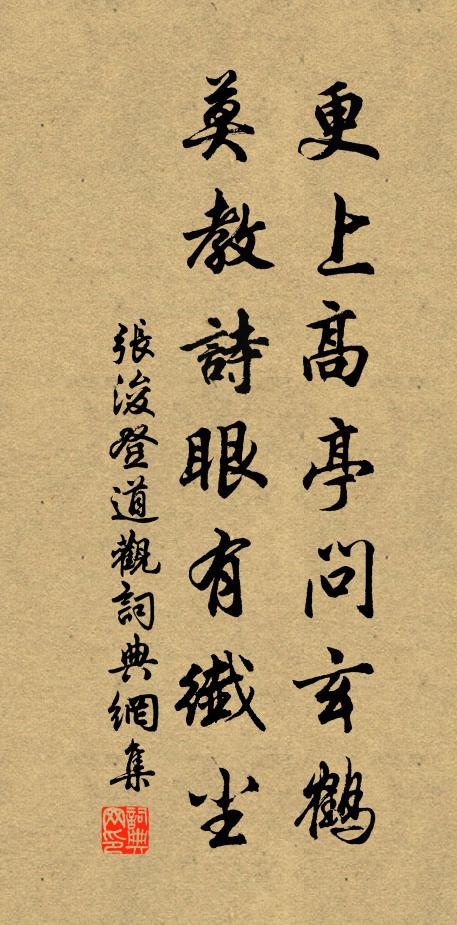 更上高亭問玄鶴
莫教詩眼有纖尘
張浚登道觀詞典網集
詞典网印